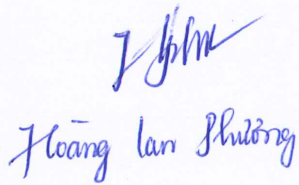 Hoàng Lan Phương